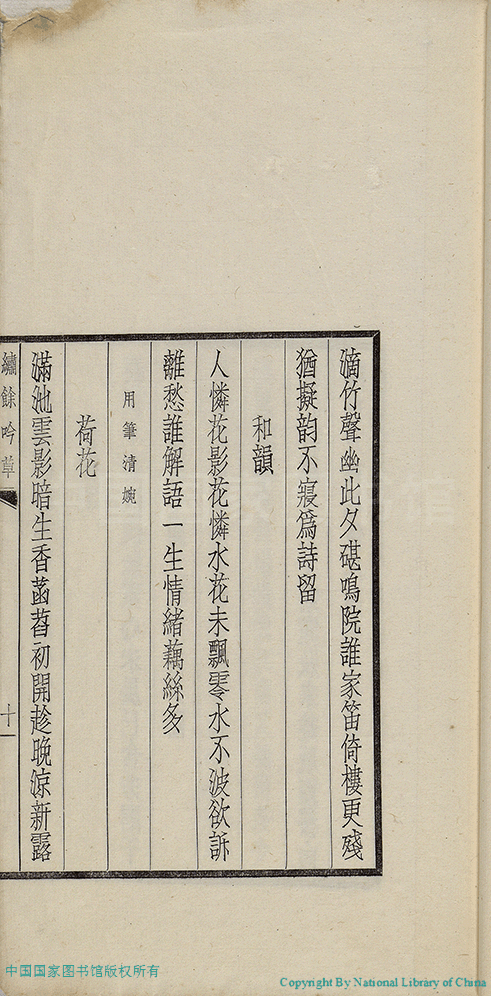 滴竹聲幽此夕碪鳴院誰家笛倚樓更殘
猶擬韵不寢爲詩留
和韻
人憐花影花憐水花未飄零水不波欲訴
離愁誰解語一生情緒藕絲多
用筆清婉
荷花
滿池雲影暗生香菡萏初開趁晚涼新露
繡餘吟草
十一
中国国家图书馆版权所有
Copyright By National Library of China